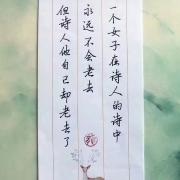 一个女子在诗人的诗中
永远不会老去
但诗人他自己却老去了